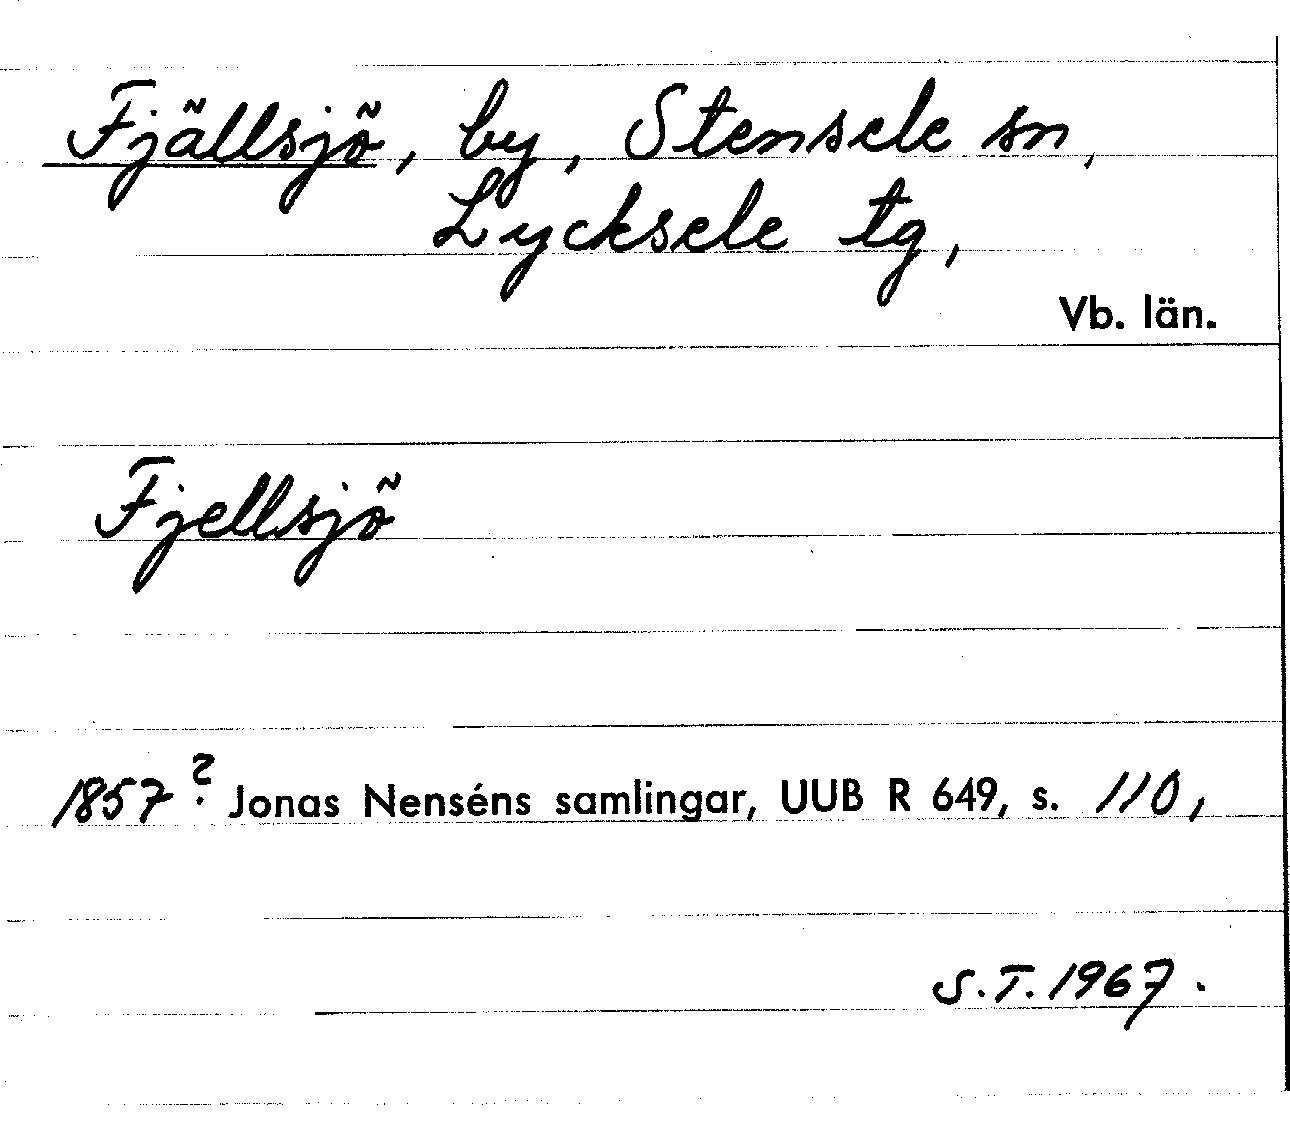 Fjällsjö, by, Stensele sn,
Lycksele tg,
Vb. län.
Fjellsjö
1857? Jonas Nenséns samlingar, UUB R 649, s. 110,
S.T. 1967.